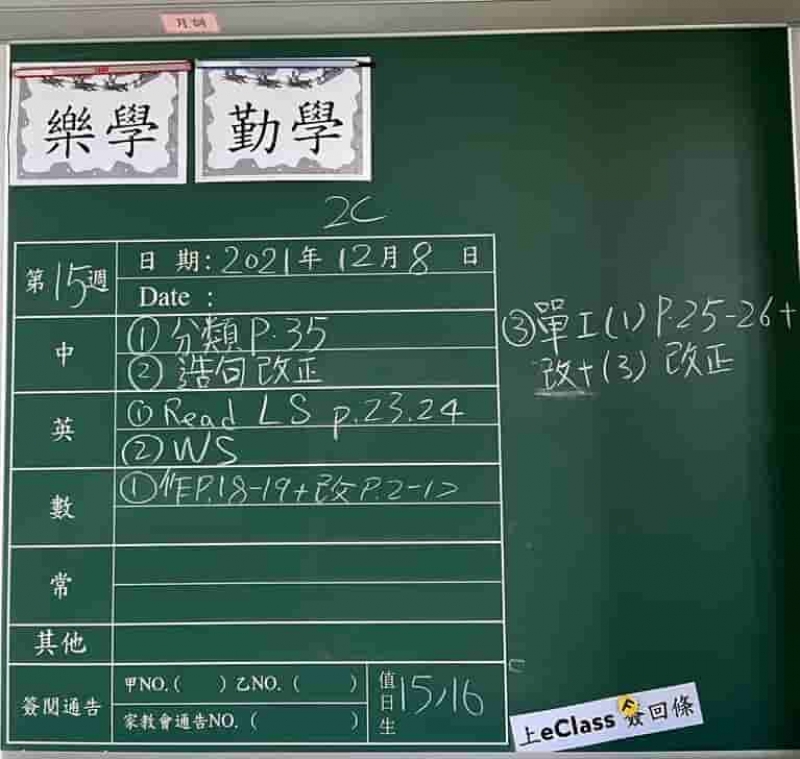 樂學
勤學
2C
第15週
日 期: 2021年12月8日
Date :
中
① 分類 P.35
② 造句改正
③ 單工(1) P.25-26+
改+(3) 改正
英
① Read LS p.23.24
② WS
數
① 作P.18-19+改P.2-12
常
其他
簽閱通告
甲NO.( ) 乙NO. ( )
家教會通告NO. ( )
值日生 15,16
上eClass 簽回條